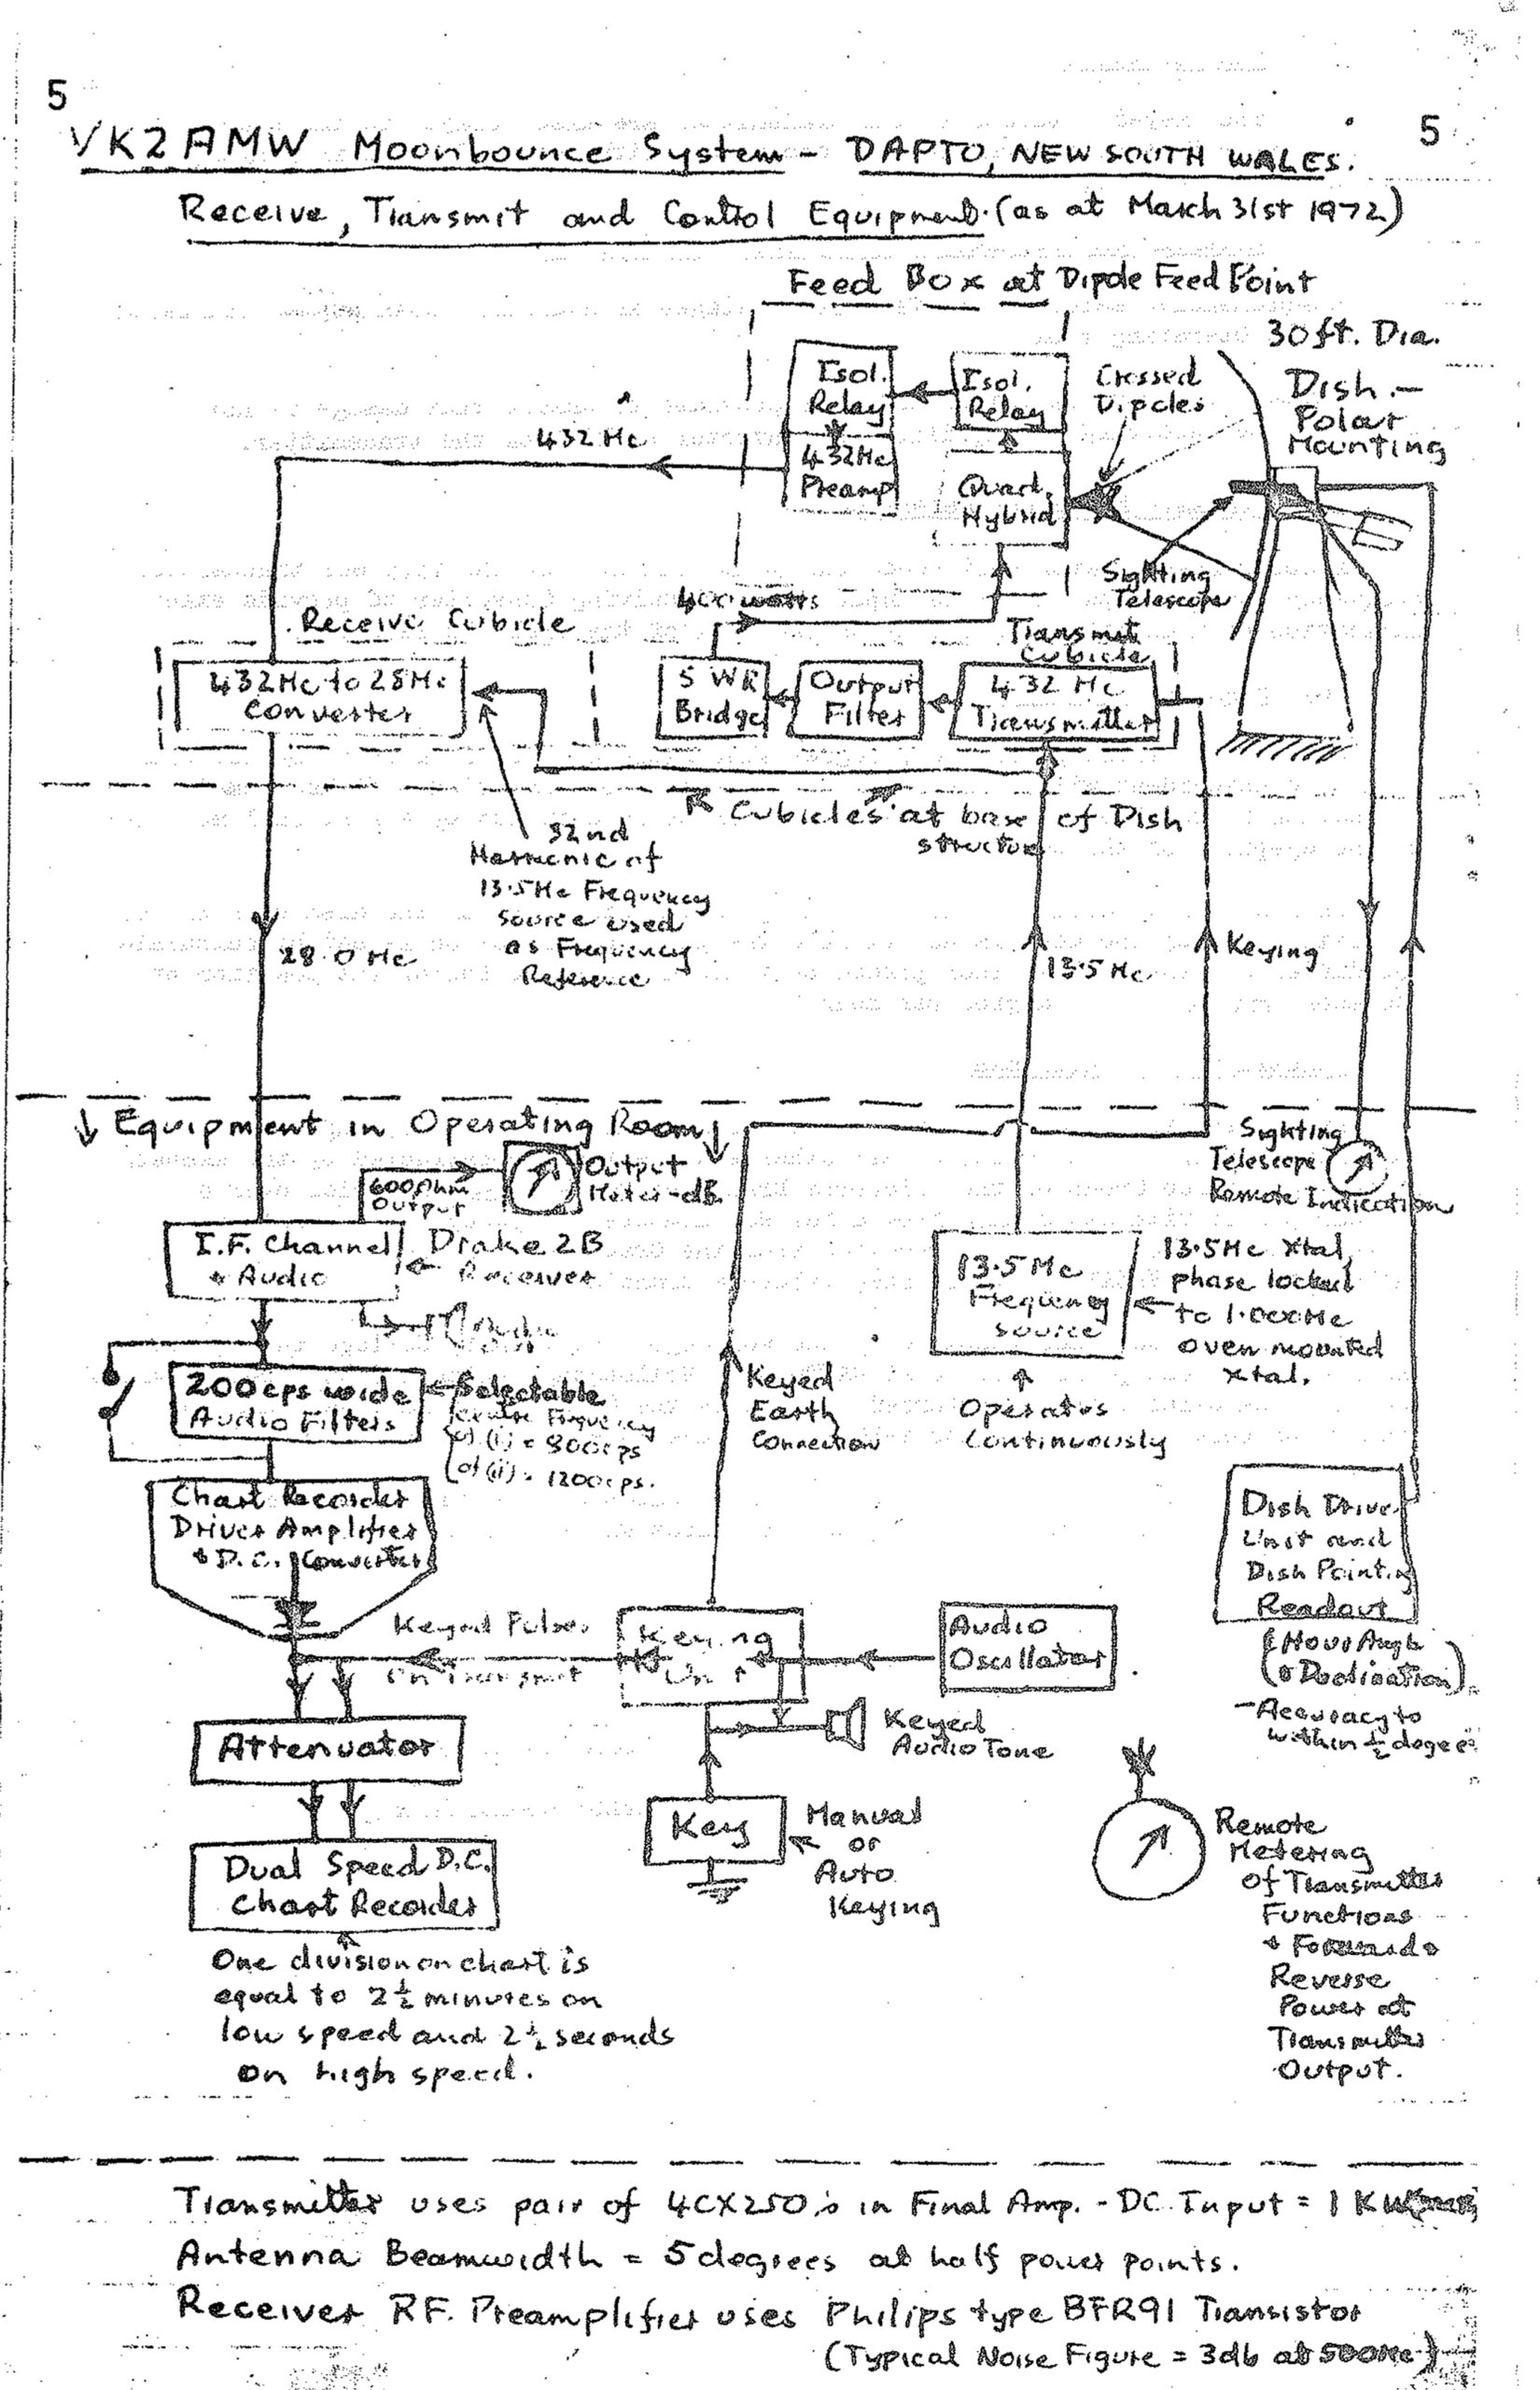 5
5
VK2AMW Moonbounce System - DAPTO, NEW SOUTH WALES.
Receive, Transmit and Control Equipment. (as at March 31st 1972)
Feed Box at Dipole Feed Point
30ft. Dia.
Dish. -
Polar
Mounting
Isol.
Relay
Isol.
Relay
Crossed
Dipoles
432 Mc
432Mc
Preamp
Quad.
Hybrid
Sighting
Telescope
400 watts
Receive Cubicle
Transmit
Cubicle
432Mc to 28Mc
Converter
SWR
Bridge
Output
Filter
432 Mc
Transmitter
Cubicles at base of Dish
structure
32nd
Harmonic of
13.5Mc Frequency
source used
as Frequency
Reference
28.0 Mc
13.5 Mc
Keying
↓ Equipment in Operating Room ↓
Sighting
Telescope
Remote Indication
600 Ohm
Output
Output
Meter-dB.
I.F. Channel
+ Audio
Drake 2B
Receiver
13.5 Mc
Frequency
source
13.5Mc Xtal,
phase locked
to 1.000Mc
oven mounted
xtal.
Operates
Continuously
200cps wide
Audio Filters
Selectable
Centre Frequency
of (i) = 800cps
of (ii) = 1200cps.
Keyed
Earth
Connection
Chart Recorder
Driver Amplifier
+ D.C. Converter
Dish Drive
Unit and
Dish Pointing
Readout
(Hour Angle
+ Declination)
- Accuracy to
within ½ degree
Keyed Pulses
on Transmit
Keying
Unit
Audio
Oscillator
Keyed
Audio Tone
Attenuator
Key
Manual
or
Auto
Keying
Dual Speed D.C.
Chart Recorder
Remote
Metering
of Transmitter
Functions
+ Forward +
Reverse
Power at
Transmitter
Output.
One division on chart is
equal to 2½ minutes on
low speed and 2½ seconds
on high speed.
Transmitter uses pair of 4CX250's in Final Amp. - DC Input = 1 KW
Antenna Beamwidth = 5 degrees at half power points.
Receiver RF. Preamplifier uses Philips type BFR91 Transistor
(Typical Noise Figure = 3db at 500Mc)